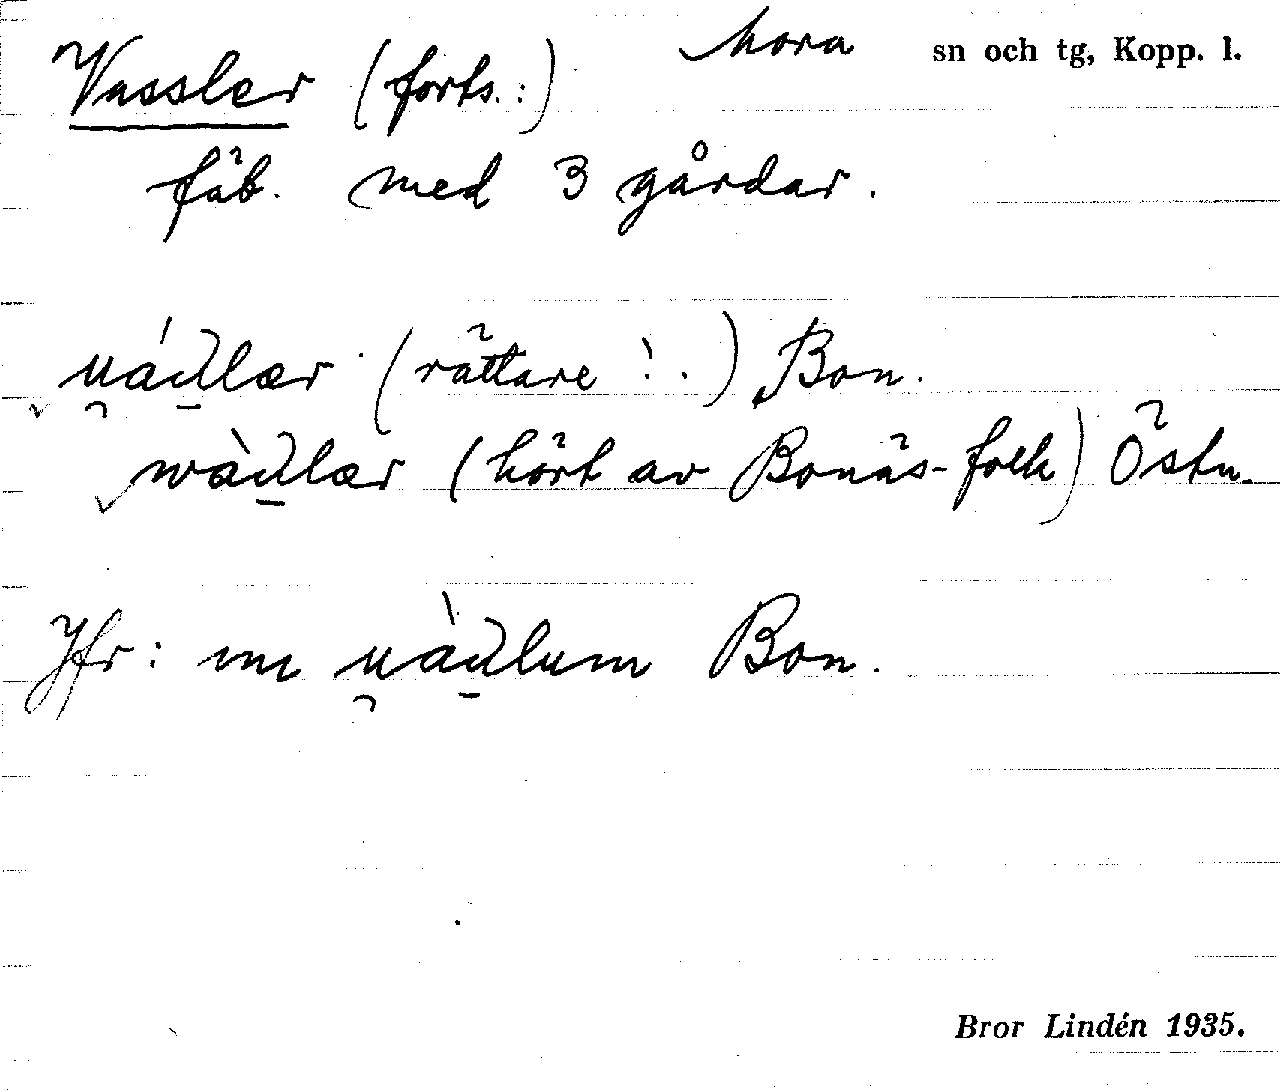 Vassler (forts.:) Mora sn och tg, Kopp. l.
fäb. med 3 gårdar.
u̯áu̲lær (rättare ! .) Bon.
wàu̲lær (hört av Bonäs-folk) Östn.
Jfr: um u̯àu̲lum Bon.
Bror Lindén 1935.